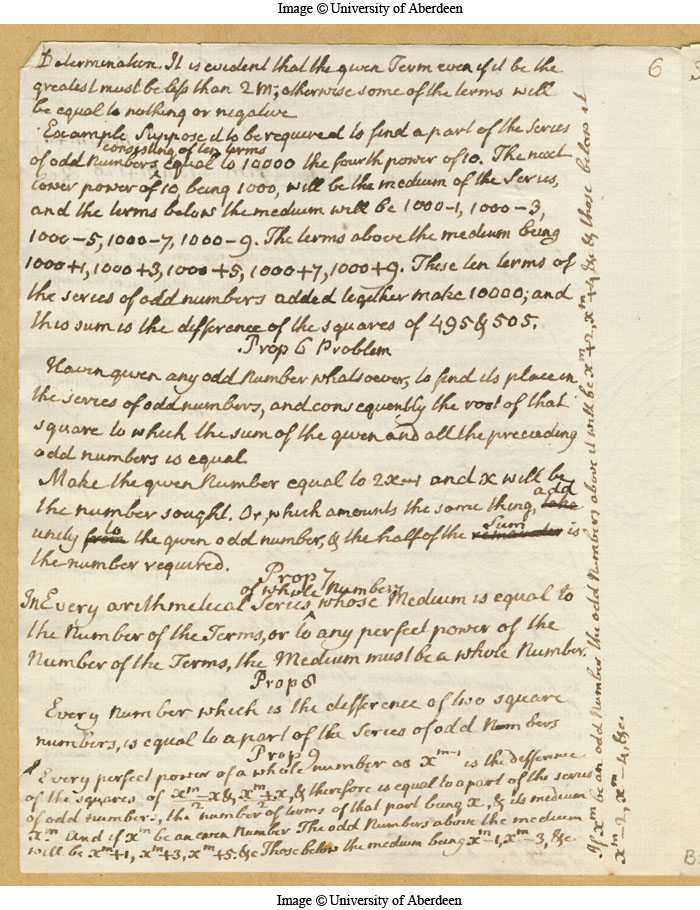 Image © University of Aberdeen
6
Determination. It is evident that the given Term even if it be the
greatest must be less than 2m; otherwise some of the terms will
be equal to nothing or negative
Example Suppose it to be required to find a part of the Series
consisting of ten terms
of odd Numbers, equal to 10000 the fourth power of 10. The next
lower power of 10, being 1000, will be the medium of the Series,
and the terms below the medium will be 1000-1, 1000-3,
1000-5, 1000-7, 1000-9. The terms above the medium being
1000+1, 1000+3, 1000+5, 1000+7, 1000+9. These ten terms of
the series of odd numbers added together make 10000; and
this sum is the difference of the squares of 495 & 505.
Prop 6 Problem
Having given any odd Number whatsoever, to find its place in
the series of odd numbers, and consequently the root of that
square to which the sum of the given and all the preceeding
odd numbers is equal
Make the given Number equal to 2x-1 and x will be
the number sought. Or, which amounts the same thing, take
add
unity from the given odd number, & the half of the remainder is
to
sum
the number required.
Prop 7
of whole Numbers
In Every arithmetical Series whose Medium is equal to
the Number of the Terms, or to any perfect power of the
Number of the Terms, the Medium must be a whole Number.
Prop 8
Every number which is the difference of two square
numbers, is equal to a part of the Series of odd Numbers
Prop 9
Every perfect power of a whole number as x^m-1 is the difference
of the squares of x^m-x/2 & x^m+x/2, & therefore is equal to a part of the series
of odd numbers, the number of terms of that part being x, & its medium
x^m. And if x^m be an even Number The odd Numbers above the medium
will be x^m+1, x^m+3, x^m+5. &c Those below the medium being x^m-1, x^m-3, &c
If x^m be an odd Number the odd Numbers above it will be x^m+2, x^m+4 &c & those below it
x^m-2, x^m-4, &c.
B
Image © University of Aberdeen